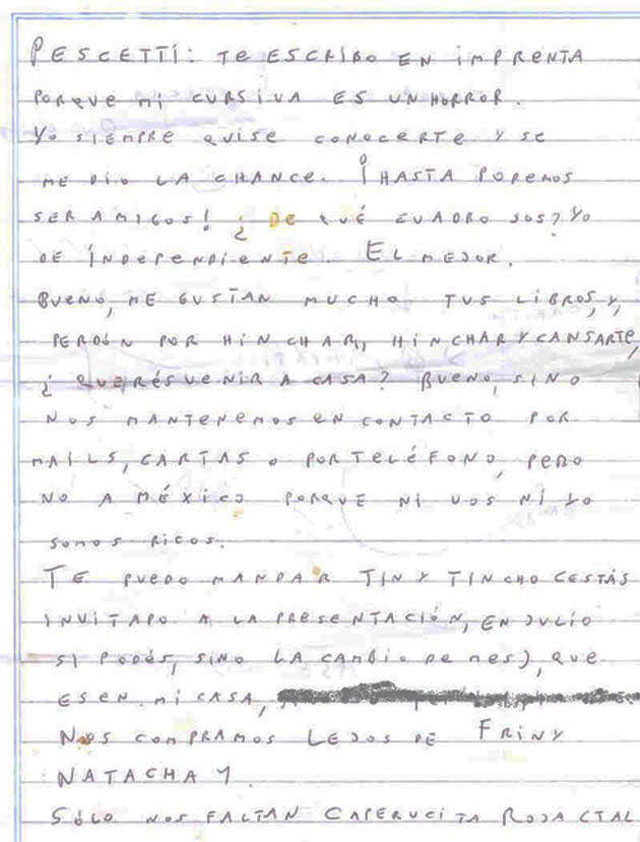 PESCETTI: TE ESCRIBO EN IMPRENTA
PORQUE MI CURSIVA ES UN HORROR.
YO SIEMPRE QUISE CONOCERTE Y SE
ME DIO LA CHANCE. ¡HASTA PODEMOS
SER AMIGOS! ¿DE QUÉ CUADRO SOS? YO
DE INDEPENDIENTE. EL MEJOR.
BUENO, ME GUSTAN MUCHO TUS LIBROS, Y,
PERDÓN POR HINCHAR, HINCHAR Y CANSARTE,
¿QUERÉS VENIR A CASA? BUENO, SINO
NOS MANTENEMOS EN CONTACTO POR
MAILS, CARTAS O POR TELÉFONO, PERO
NO A MÉXICO PORQUE NI VOS NI YO
SOMOS RICOS.
TE PUEDO MANDAR TIN Y TINCHO (ESTÁS
INVITADO A LA PRESENTACIÓN, EN JULIO
SI PODÉS, SINO LA CAMBIO DE MES), QUE
ES EN MI CASA,
NOS COMPRAMOS LEJOS DE FRIN Y
NATACHA 1.
SÓLO NOS FALTAN CAPERUCITA ROJA (TAL